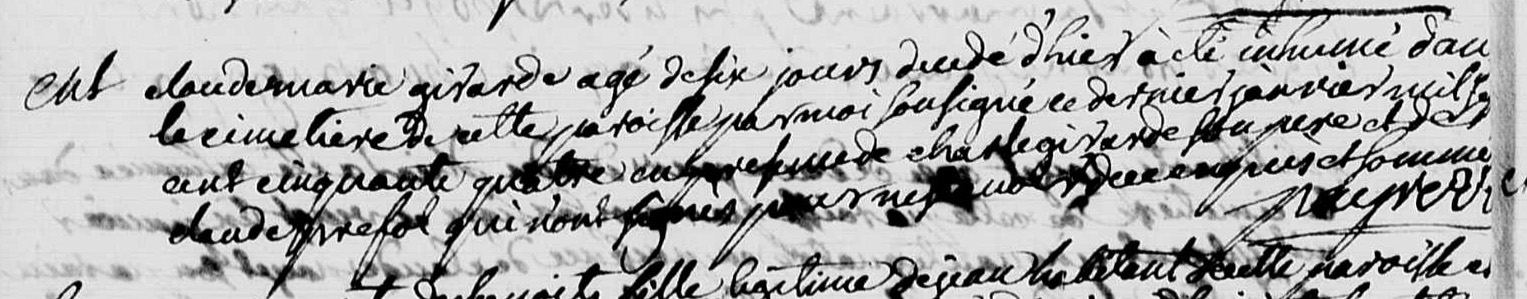 ent claudemarie girarde agé de six jours decedé d'hier à été inhumé dan
le cimetiere de cette paroisse par moi sousigné ce dernier janvier mil se
cent cinquante quatre en presence de charle girarde son pere et de
claude prefol qui n'ont signes pour ne de ce enquis et somme
fille legitime de jean habitant de cette paroisse